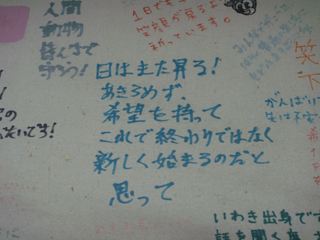 人間
動物
皆んなで
守ろう!
1日でも
笑顔が戻る
祈っています。
日はまた昇る!
あきらめず、
希望を持って
これで終わりではなく
新しく始まるのだと
思って
笑
がんばり
いわき出身です
話を聞く